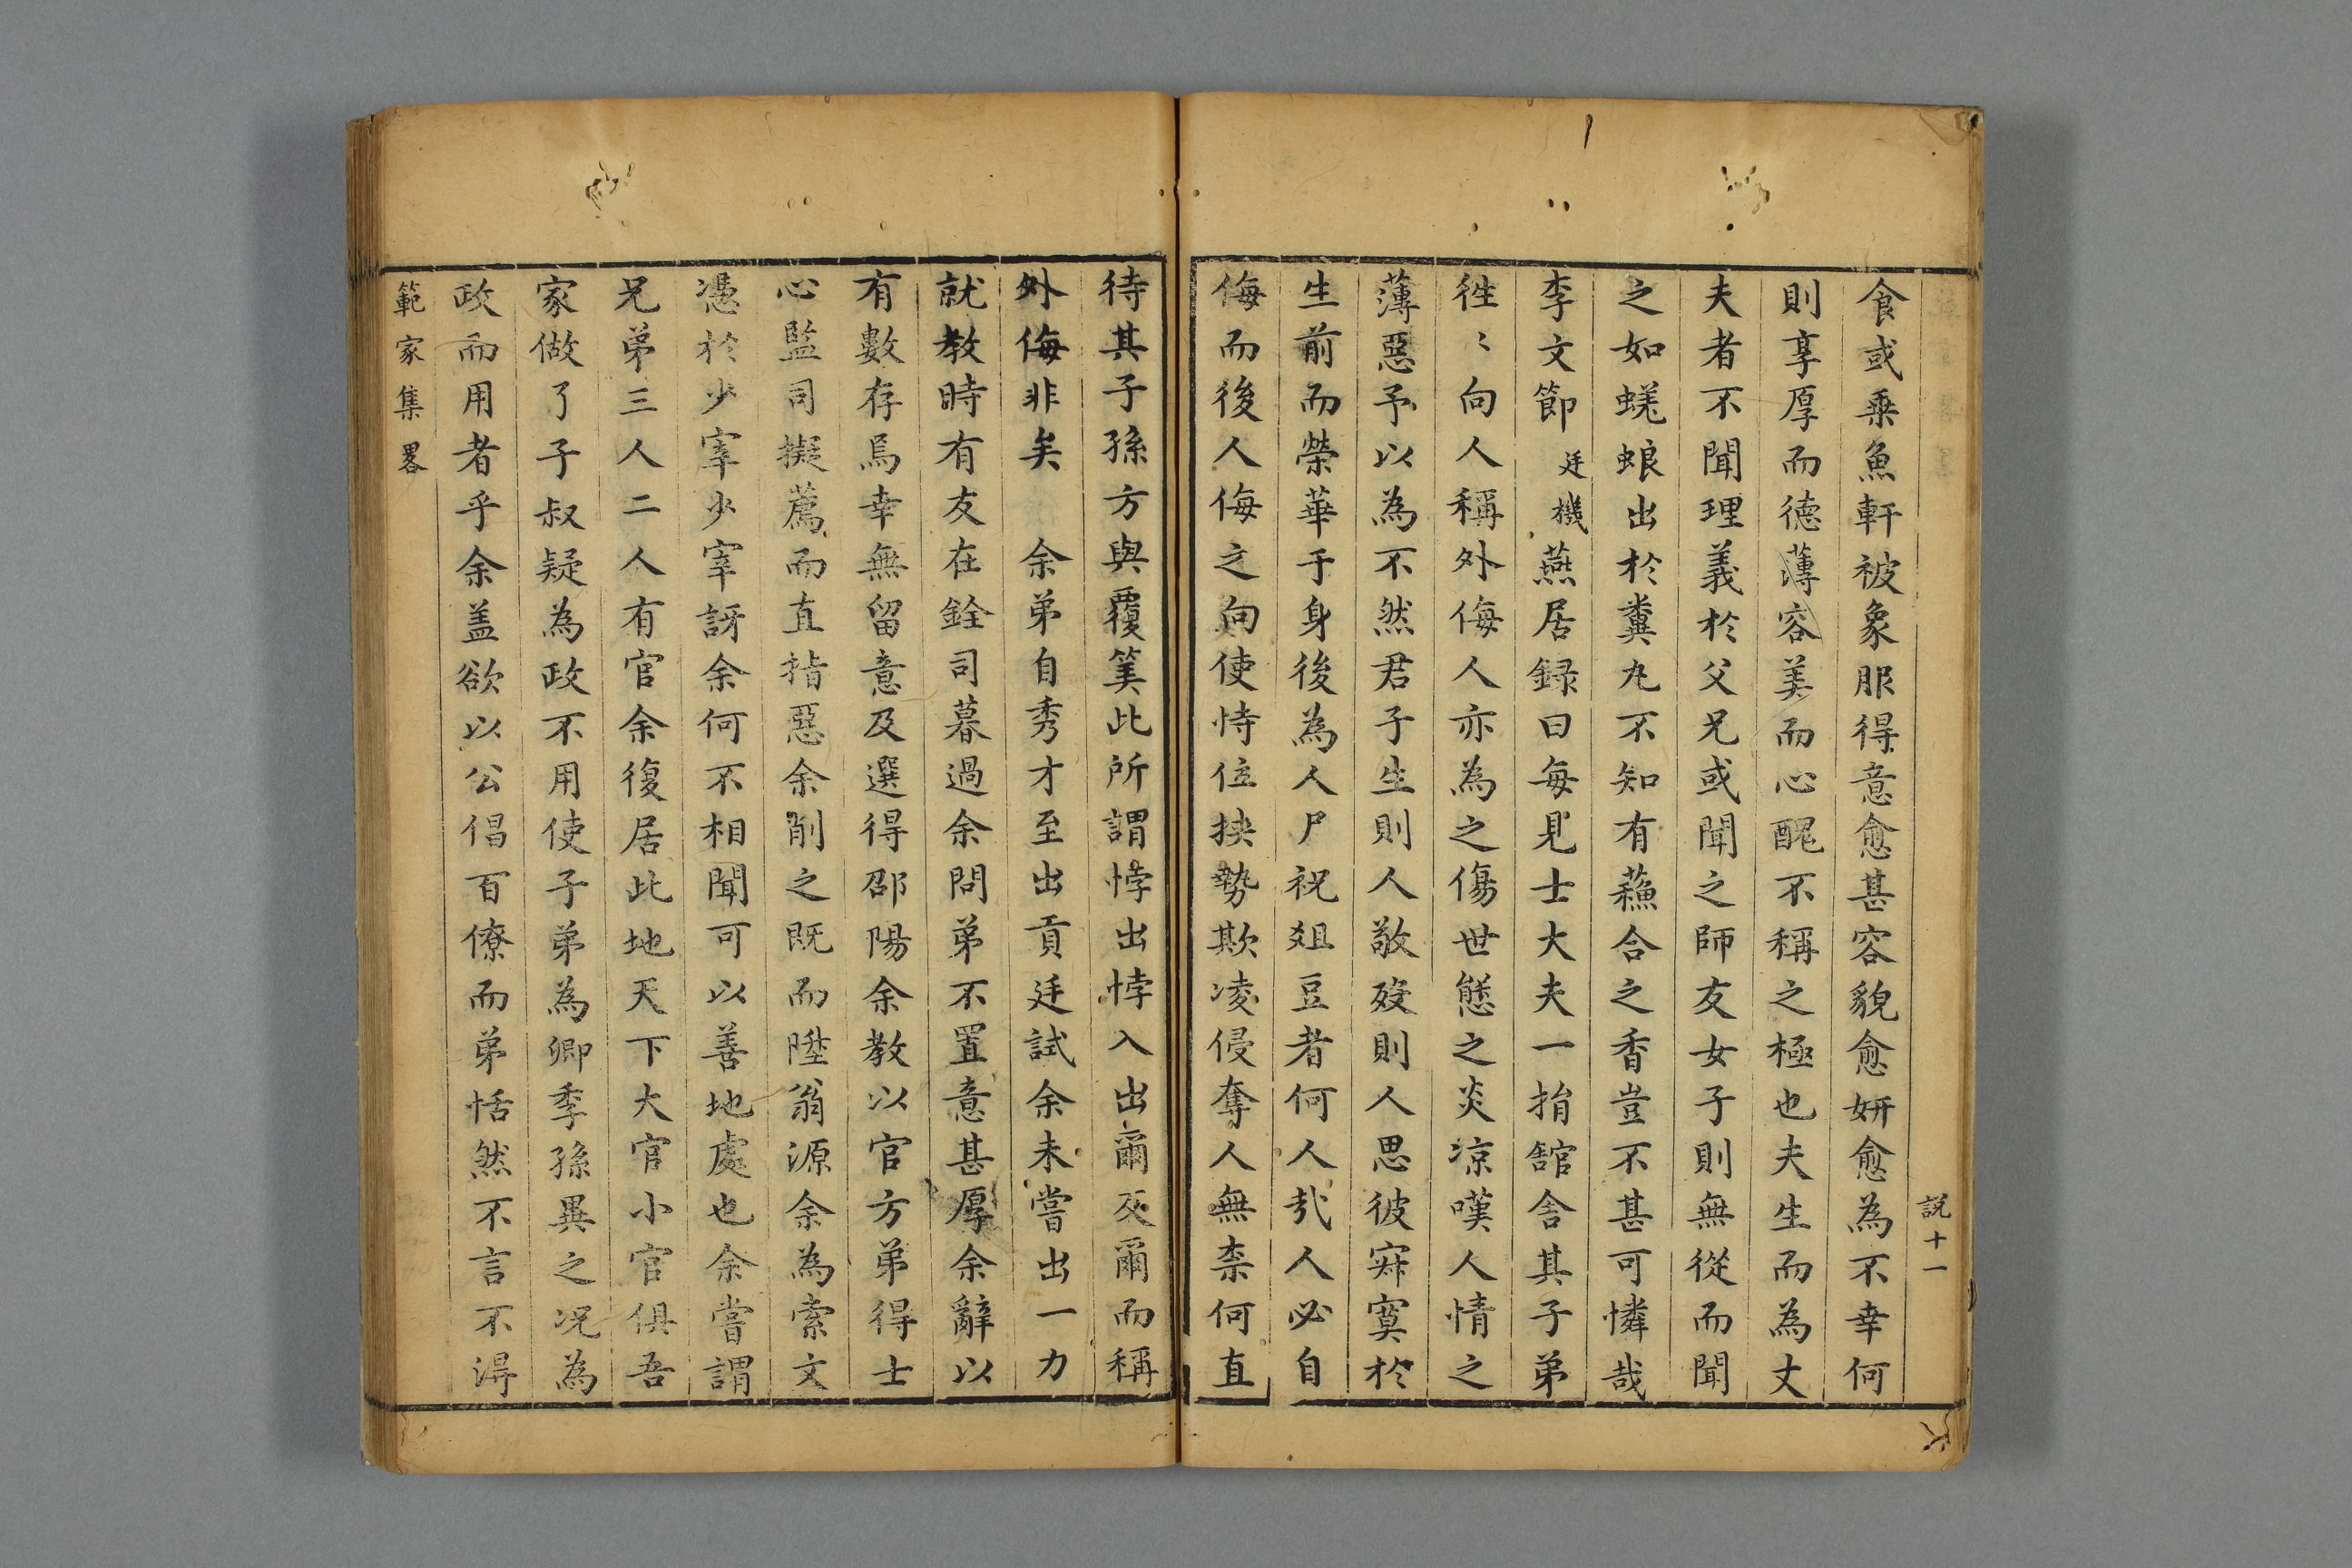 食或乗魚軒被象服得意愈甚容貌愈妍愈為不幸何
則享厚而德薄容美而心醜不稱之極也夫生而為丈
夫者不聞理義於父兄或聞之師友女子則無從而聞
之如蜣蜋出於糞丸不知有蘓合之香豈不甚可憐哉
李文節廷機燕居録曰每見士大夫一捐舘舍其子弟
徃〻向人稱外侮人亦為之傷世態之炎凉嘆人情之
薄惡予以為不然君子生則人敬殁則人思彼寂寞於
生前而榮華于身後為人尸祝俎豆者何人㢤人必自
侮而後人侮之向使恃位挾勢欺凌侵奪人無柰何直
説十一
待其子孫方與覆筭此所謂悖出悖入出爾反爾而稱
外侮非矣　余弟自秀才至出貢廷試余未嘗出一力
就教時有友在銓司暮過余問弟不置意甚厚余辭以
有數存焉幸無留意及選得邵陽余教以官方弟得士
心監司擬薦而直指惡余削之既而陞翁源余為索文
憑於少宰少宰訝余何不相聞可以善地處也余嘗謂
兄弟三人二人有官余復居此地天下大官小官俱吾
家做了子叔疑為政不用使子弟為卿季孫異之况為
政而用者乎余盖欲以公倡百僚而弟恬然不言不淂
範家集畧